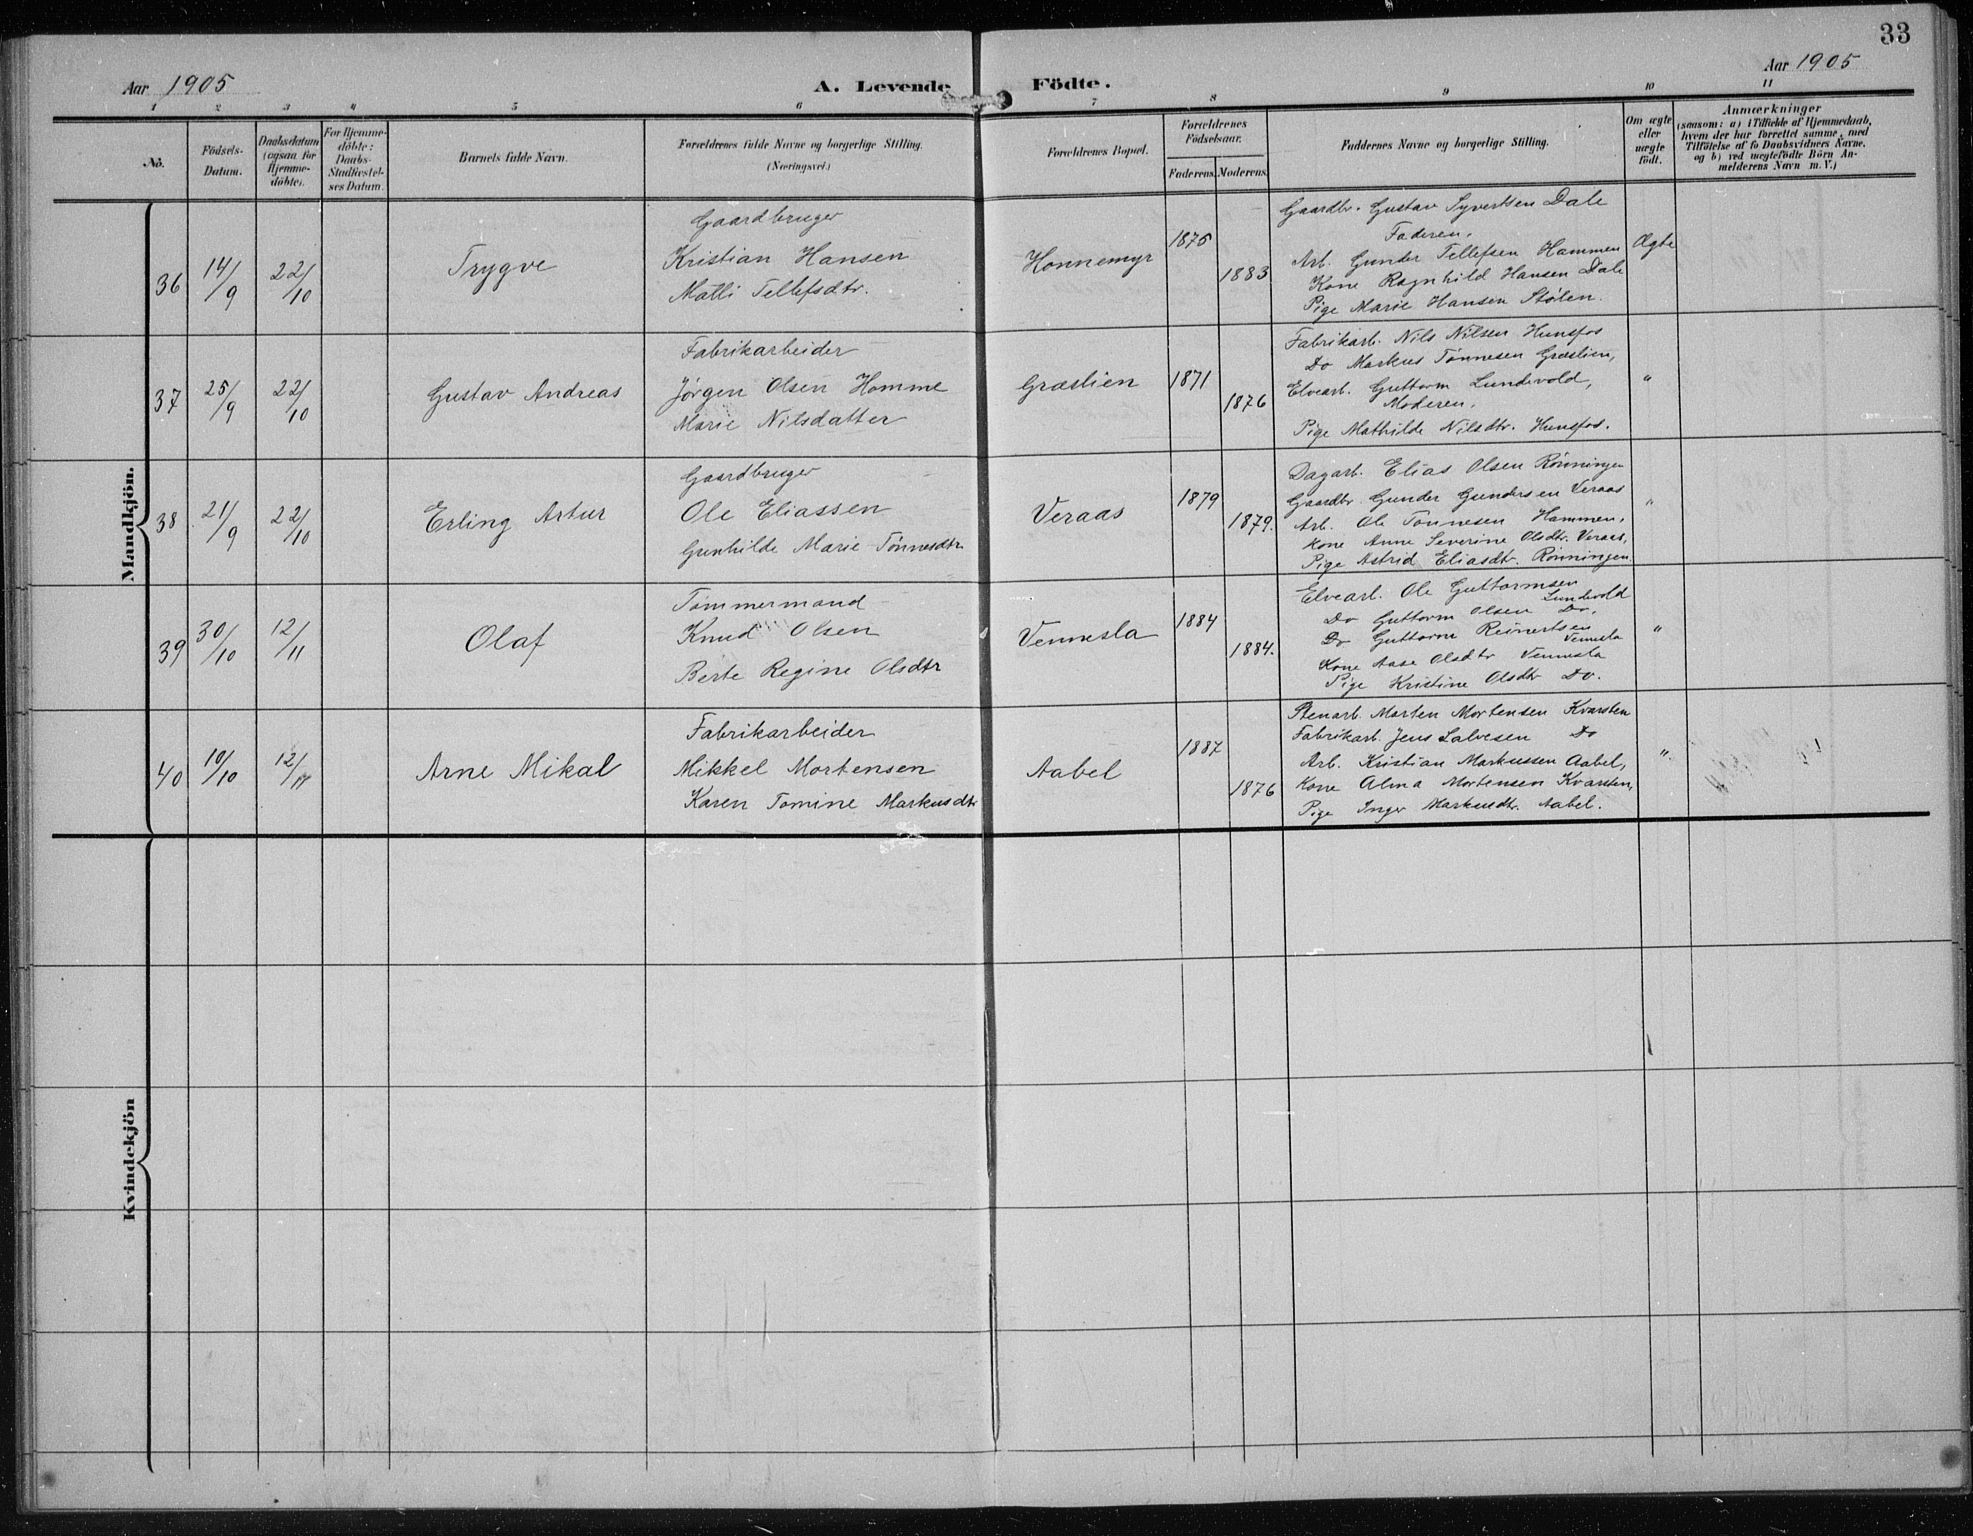 33
Aar 1905
A. Levende
Födte.
Aar 1905
1 2 3 4 5 6 7 8 9 10 11
No.
Födsels-
Datum.
Daabsdatum
(ogsaa for
Hjemme-
döbte).
For Hjemme-
döbte:
Daabs-
Stadfæstel-
ses Datum.
Barnets fulde Navn.
Forældrenes fulde Navne og borgerlige Stilling.
(Næringsvei.)
Forældrenes Bopæl.
Forældrenes
Födselsaar.
Faderens. Moderens.
Faddernes Navne og borgerlige Stilling.
Om ægte
eller
uægte
födt.
Anmærkninger
(saasom: a) i Tilfælde af Hjemmedaab,
hvem der har forrettet samme, med
Tilföielse af to Daabsvidners Navne.
og b) ved uægtefödte Börn An-
melderens Navn m. V.)
Mandkjön.
36
14/9
22/10
Trygve
Gaardbruger
Kristian Hansen
Malli Tellefsdtr.
Honnemyr
1875
1883
Gaardbr. Gustav Syvertsen Dale
Faderen.
Arb. Gunder Tellefsen Hammen
Kone Ragnhild Hansen Dale
Pige Marie Hansen Stölen.
Ægte
37
25/9
22/10
Gustav Andreas
Fabrikarbeider
Jörgen Olsen Homme
Marie Nilsdatter
Græslien
1871
1876
Fabrikarb. Nils Nilsen Hunsfos
Do Markus Tönnesen Græslien,
Elvearb. Guttorm Lundevold,
Moderen.
Pige Mathilde Nilsdtr. Hunsfos.
"
38
21/9
22/10
Erling Artur
Gaardbruger
Ole Eliassen
Gunhilde Marie Tönnesdtr.
Veraas
1879
1879.
Dagarb. Elias Olsen Rönningen
Gaardbr. Gunder Gundersen Veraas
Arb. Ole Tönnesen Hammen,
Kone Anne Severine Olsdtr. Veraas,
Pige Astrid Eliasdtr. Rönningen
"
39
30/10
12/11
Olaf
Tömmermand
Knud Olsen
Berte Regine Olsdtr
Vennesla
1884
1884.
Elvearb. Ole Guttormsen
Lundevold
Do Guttorm Olsen Do.
Do Guttorm Reinertsen
Vennesla
Kone Aase Olsdtr Vennesla
Pige Kristine Olsdtr Do.
"
40
10/10
12/11
Arne Mikal
Fabrikarbeider
Mikkel Mortensen
Karen Tomine Markusdtr
Aabel
1887
1876
Stenarb. Morten Mortensen Kvarsten
Fabrikarb. Jens Salvesen Do
Arb. Kristian Markussen Aabel,
Kone Alma Mortensen Kvarsten,
Pige Inger Markusdtr. Aabel.
"
Kvindekjön